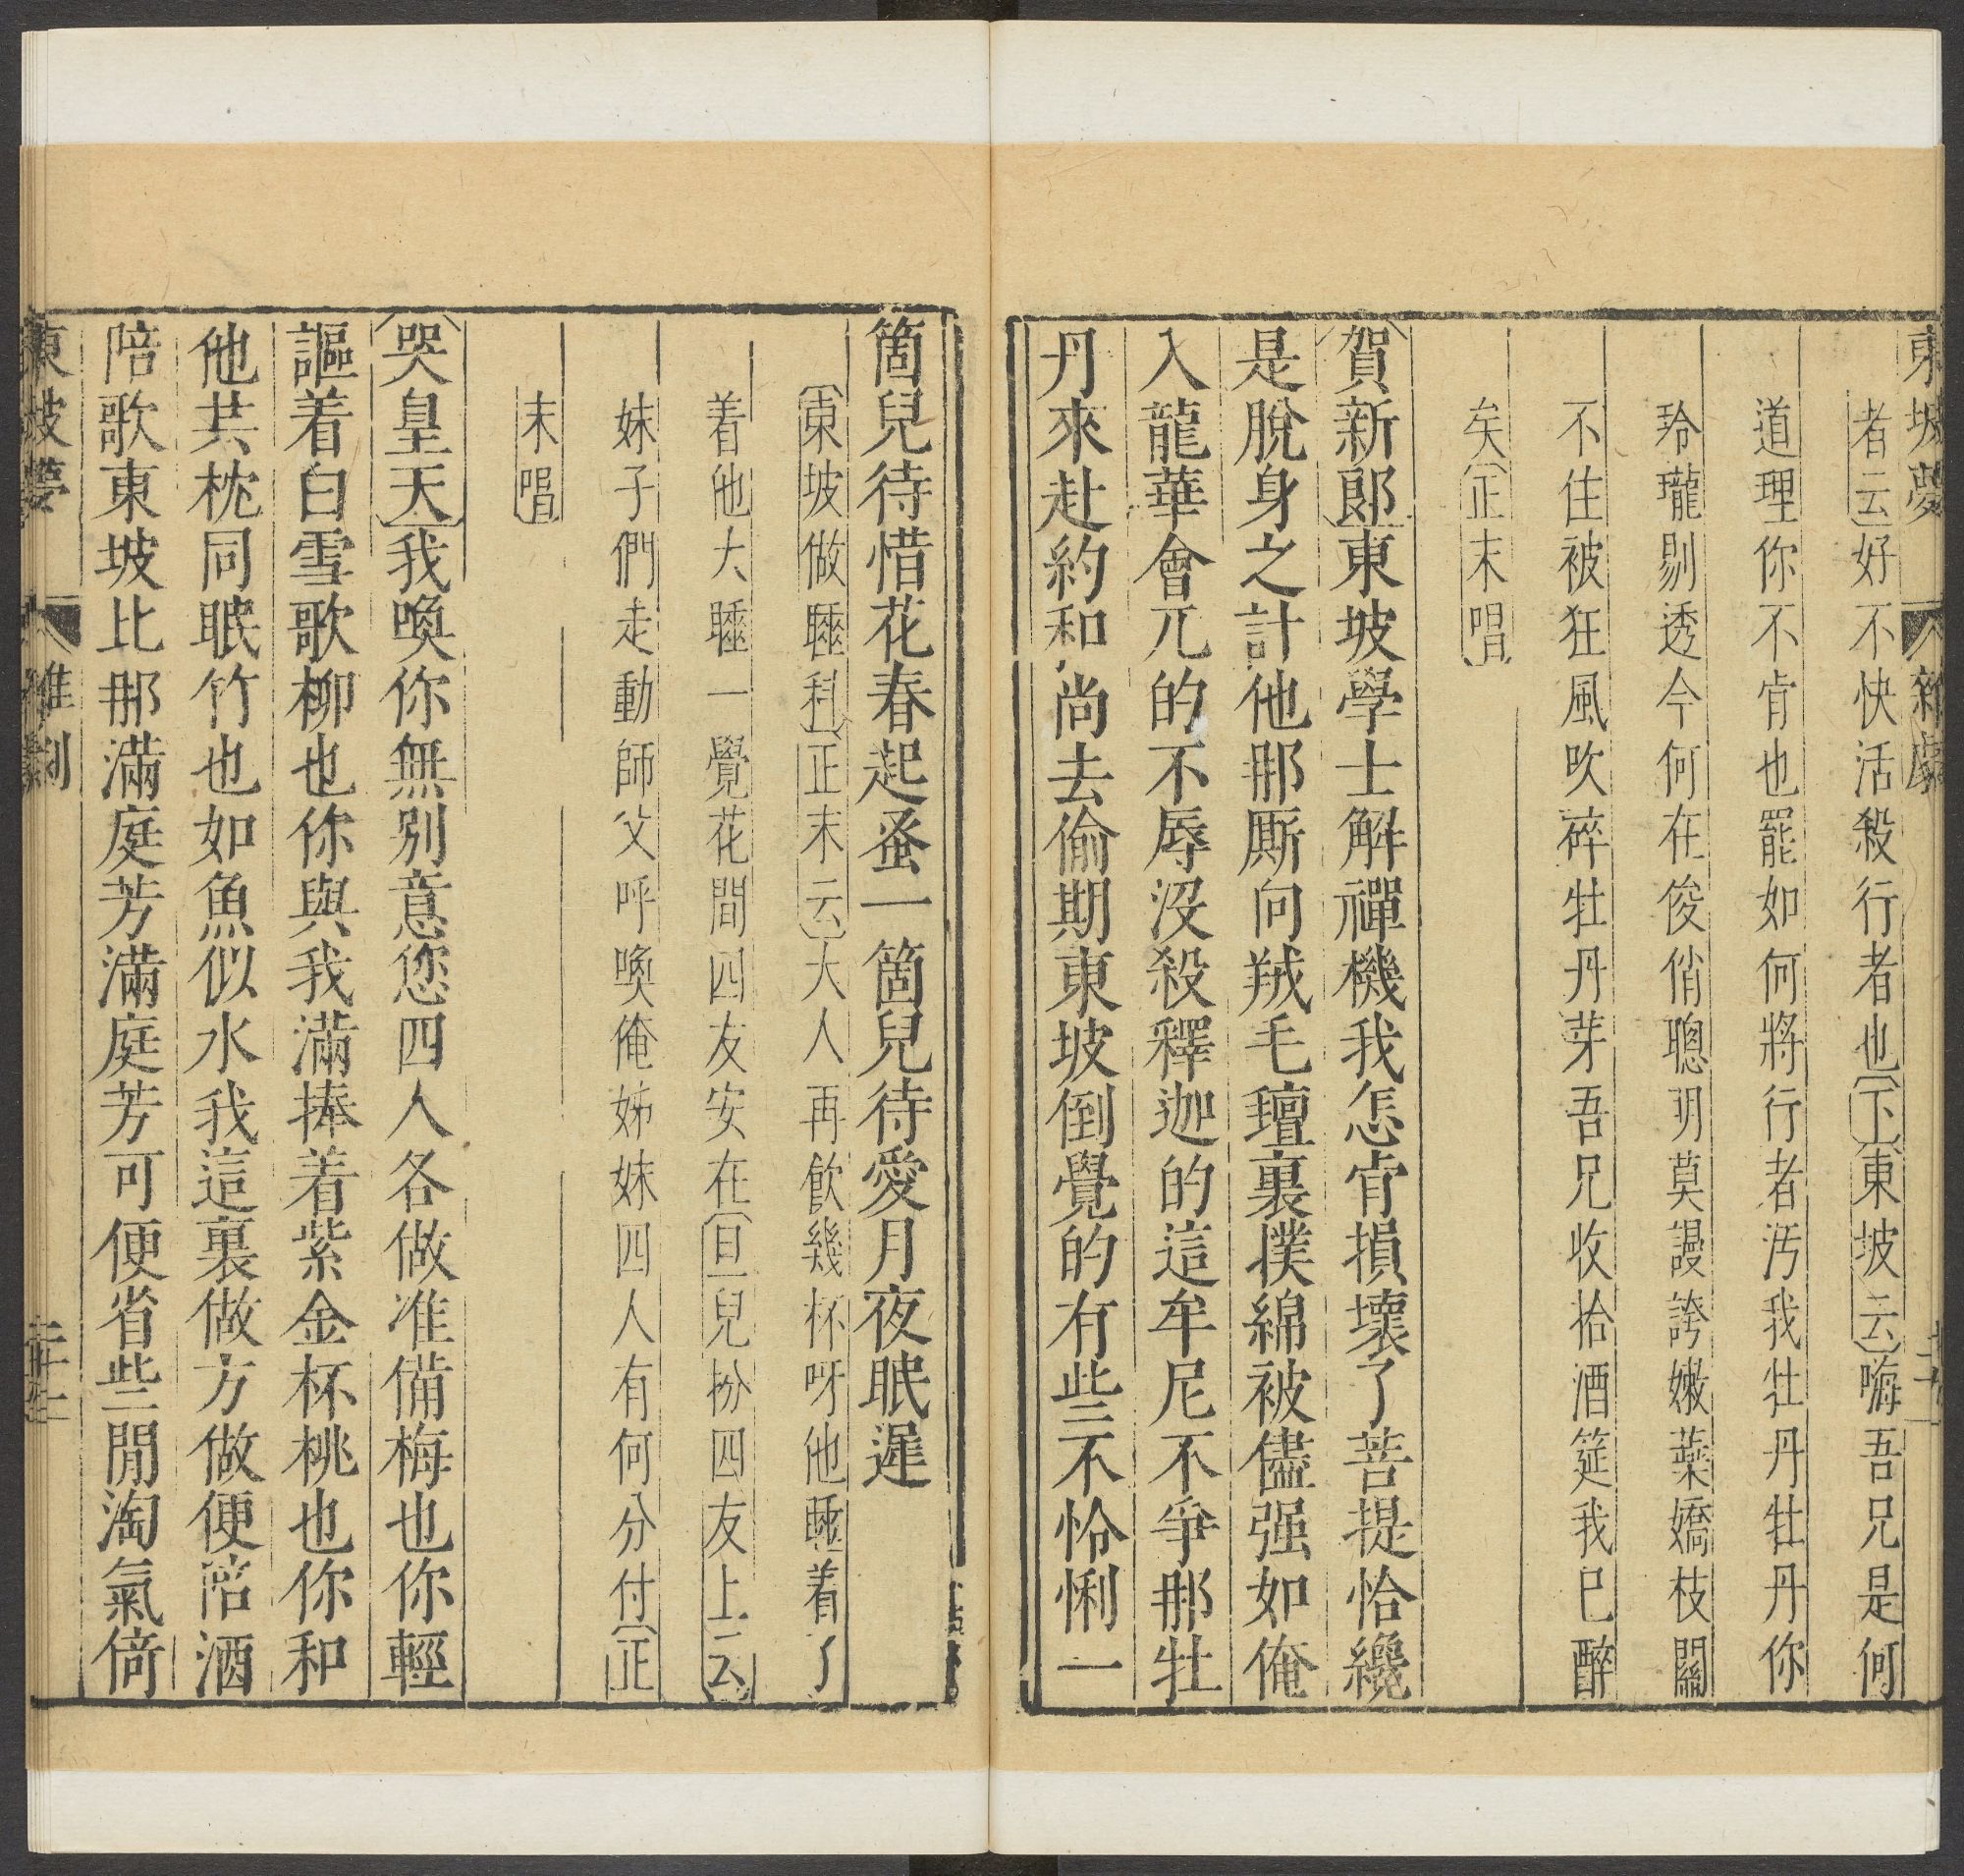 東坡夢 雜劇
者云好不快活殺行者也下東坡云嗨吾兄是何
道理你不肯也罷如何將行者汚我牡丹牡丹你
玲瓏剔透今何在俊俏聰明莫謾誇嫩蘂嬌枝關
不住被狂風吹碎牡丹芽吾兄收拾酒筵我已醉
矣正末唱
賀新郎東坡學士解禪機我怎肯損壞了菩提恰纔
是脫身之計他那厮向羢毛氊裏撲綿被儘强如俺
入龍華會兀的不辱沒殺釋迦的這牟尼不爭那牡
丹來赴約和尚去偷期東坡倒覺的有些不怜悧一
箇兒待惜花春起蚤一箇兒待愛月夜眠遲
東坡做睡科正末云大人再飮幾杯呀他睡着了
着他大睡一覺花間四友安在旦兒扮四友上云
妹子們走動師父呼喚俺姊妹四人有何分付正
末唱
哭皇天我喚你無別意您四人各做准備梅也你輕
謳着白雪歌柳也你與我滿捧着紫金杯桃也你和
他共枕同眠竹也如魚似水我這裏做方做便陪酒
陪歌東坡比那滿庭芳滿庭芳可便省些閒淘氣倚
東坡夢